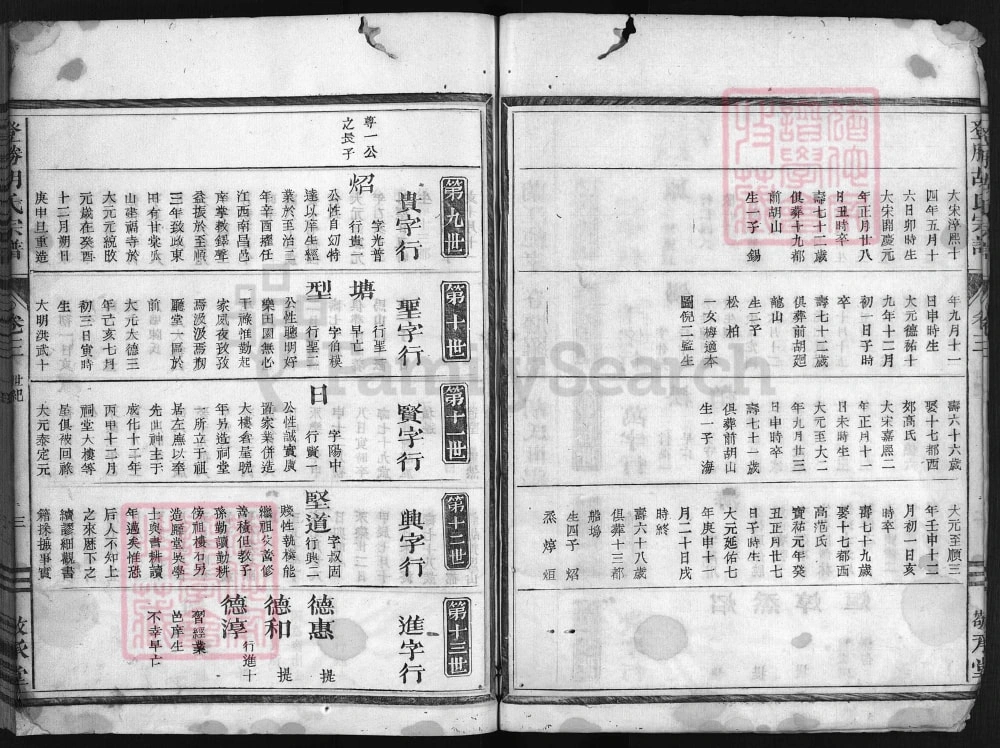 大宋淳熙十
四年五月十
六日卯時生
大宋開慶元
年正月廿八
日丑時卒
壽七十二歲
俱葬十九都
前胡山
生一子 錫
年九月十一
日申時生
大元德祐十
九年十二月
初一日子時
卒
壽七十二歲
俱葬前胡廷
龍山
生二子
松 柏
一女梅適本
圖倪二監生
壽六十六歲
娶十七都西
郊高氏
大宋嘉熙二
年正月十一
日未時生
大元至大二
年九月廿三
日申時卒
壽七十一歲
俱葬前胡山
生一子 海
大元至順三
年壬申十二
月初一日亥
時卒
壽七十九歲
娶十七都西
高范氏
寶祐元年癸
丑正月廿七
日子時生
大元延佑七
年庚申十一
月二十日戌
時終
壽六十八歲
俱葬十三都
船塢
生四子 炤
烝 焞 烜
敬承堂
第九世
貴字行
尊一公
之長子
炤
字光普
行貴一
公性自幼特
達以庠生經
業於至治三
年辛酉擢任
江西南昌邑
庠掌教鐸聲
益振於至順
三年致政東
山建福寺於
大元元統改
元歲在癸酉
十二月朔日
庚申旦重造
第十世
聖字行
塘
行聖一
早亡
型
字伯模
行聖二
公性聰明好
樂田園無心
干祿惟勤起
家夙夜孜孜
焉汲汲焉剏
廳堂一區於
前
大元大德三
年己亥七月
初三日寅時
生
大明洪武十
第十一世
賢字行
日
字陽中
行賢一
公性誠實廣
置家業併造
大樓倉呈晩
年另造祠堂
一所立于祖
居左廡以奉
先世神主于
成化十二年
丙申十二月
祠堂大樓等
星俱被回祿
大元泰定元
第十二世
興字行
堅道
字叔固
行興二
賤性執橫能
繼祖父當修
善積但教子
孫勤讀勤耕
傍祖樓右另
造廳堂吳學
士與書耕讀
年邁矣惟恐
后人不知上
之來歷下之
續謬細觀書
籍採摭事實
第十三世
進字行
德惠 提
德和 提
德淳
行進十
習經業
邑庠生
不幸早亡
登勝胡氏宗譜
卷之三
世紀
三
敬承堂
FamilySearch